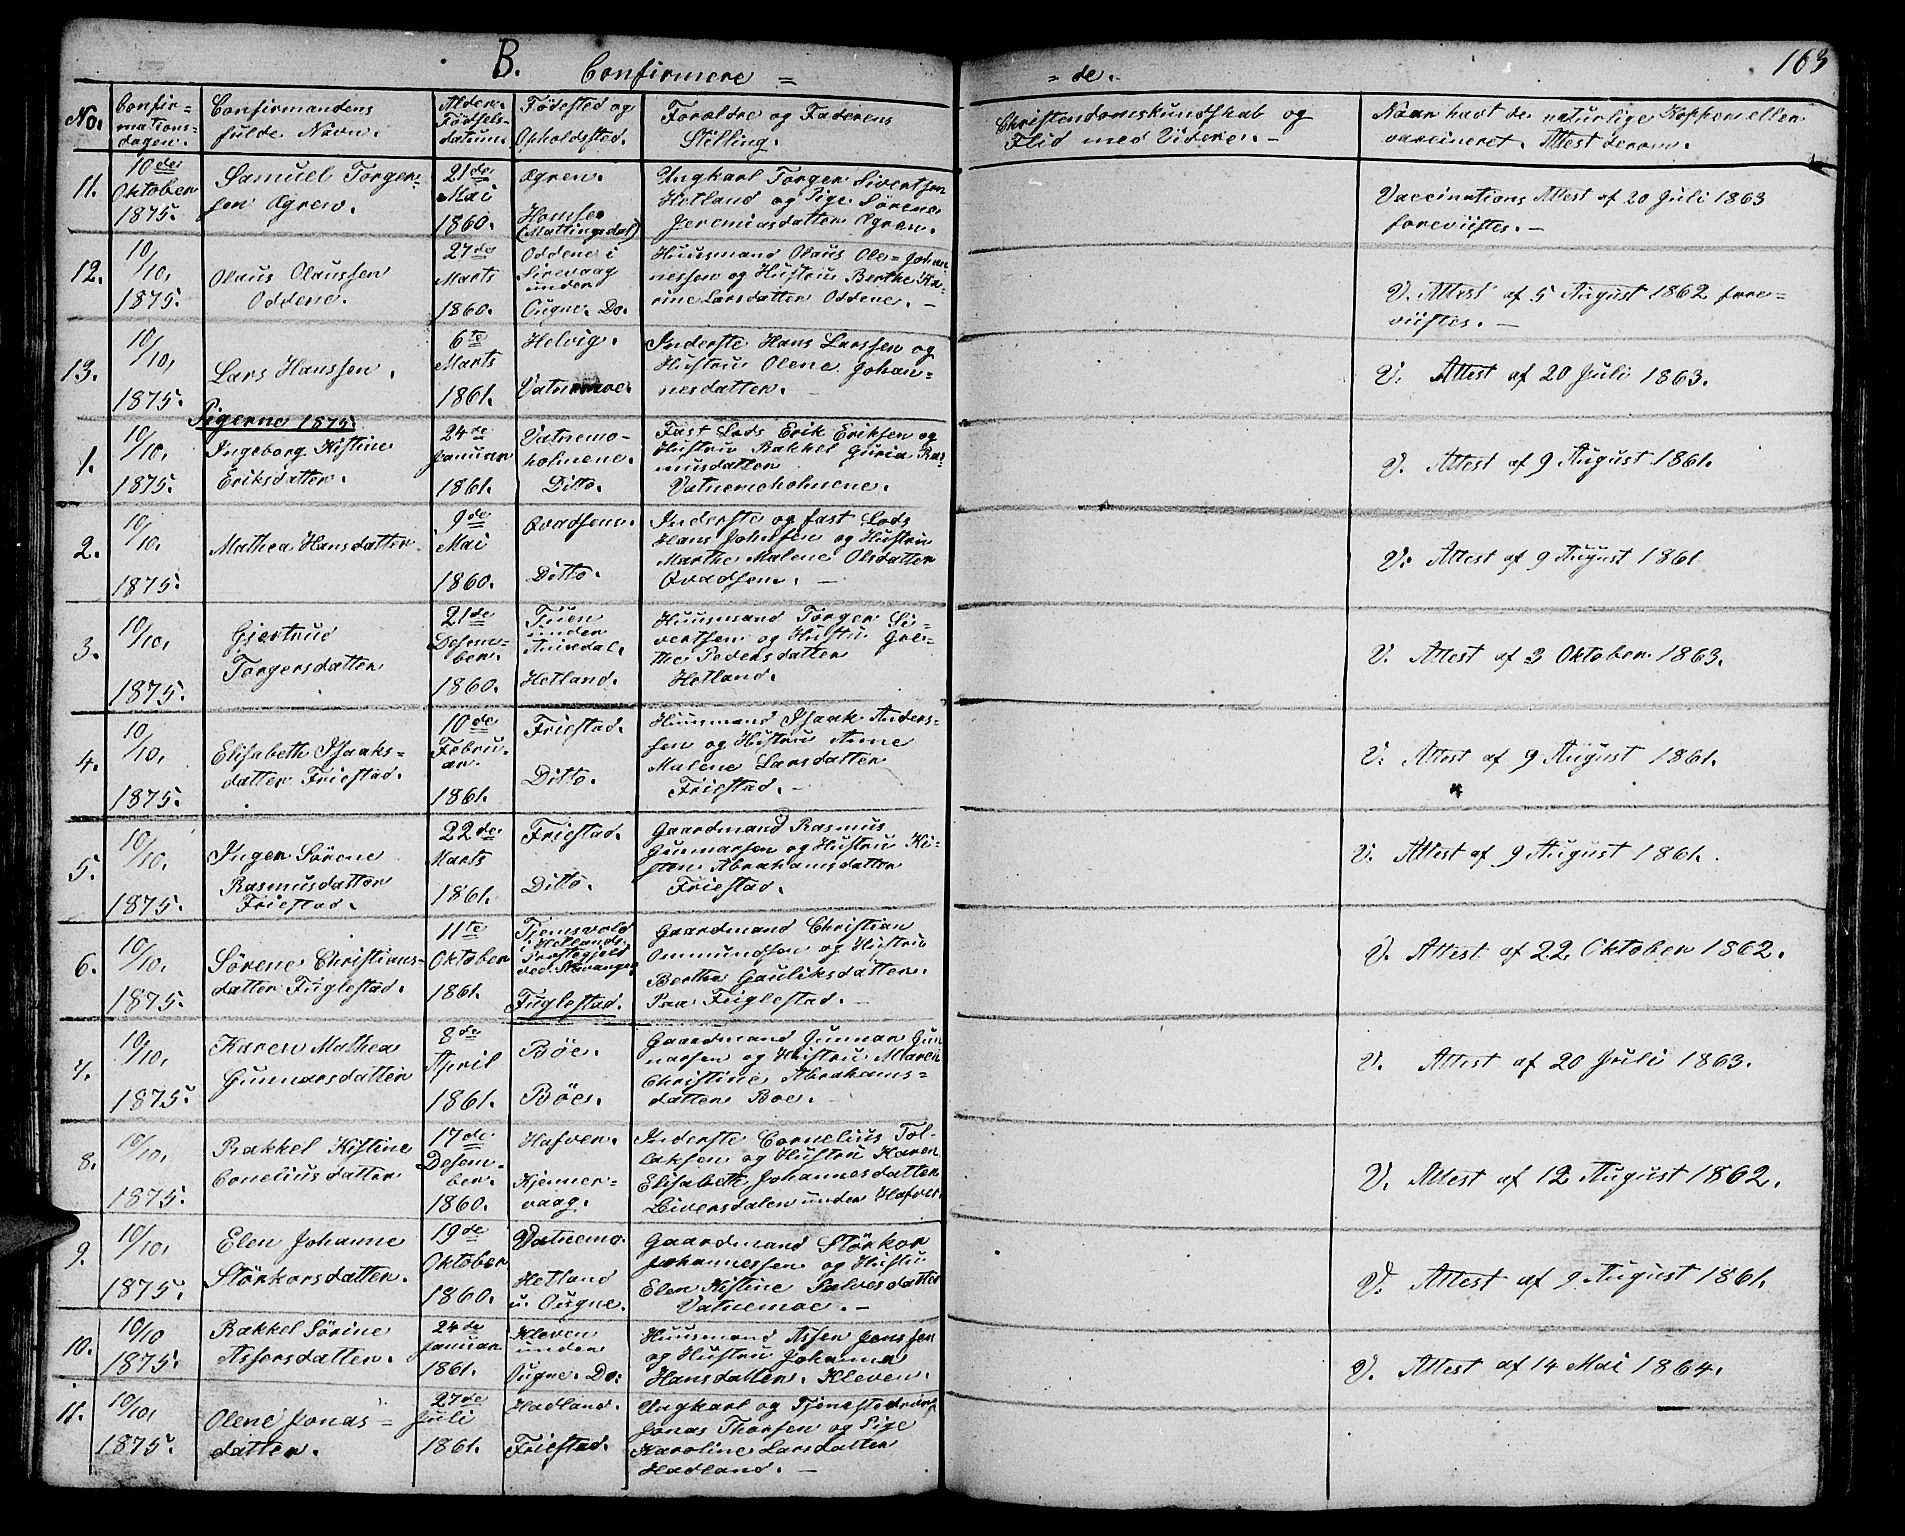 B. Confirmere =
= de.
163
No.
Confir=
mations=
dagen.
Confirmandens
fulde Navn.
Alder.
Fødsels-
datum.
Fødested og
Opholdsted.
Forældre og Faderens
Stilling.
Christendomskundskab og
Flid med Videre. -
Naar havt de naturlige Kopper eller
vaccineret. Attest derom.
11.
10de
Oktober
1875.
Samuel Torger=
sen Ogren.
21de
Mai
1860.
Ogren.
Homse
(Mattingsdal)
Ungkarl Torger Sivertsen
Hetland og Pige Sørene
Jeremiasdatter Ogren.
Vaccinations Attest af 20 Juli 1863
foreviistes. -
12.
10/
10.
1875.
Olaus Olaussen
Oddene.
27de
Marts
1860.
Oddene i
Sirevaag
under
Ougne. Do.
Huusmand Olaus Ole= Johan
nessen og Hustru Berthe Ka-
rine Larsdatter Oddene. -
V. Attest af 5 August 1862 fore-
viistes. -
13.
10/
10,
1875.
Lars Hanssen.
6te
Marts
1861.
Helvig.
Vatnemoe.
Inderste Hans Larssen og
Hustru Olene Johan-
nesdatter.
V. Attest af 20 Juli 1863.
Pigerne 1875.
1.
10/
10.
1875.
Ingeborg Kistine
Eriksdatter.
24de
Januar
1861.
Vatnemo-
holmene.
Ditto.
Fast Lods Erik Eriksen og
Hustru Rakkel Guria Ras-
musdatter
Vatnemoholmene.
V. Attest af 9 August 1861.
2.
10/
10.
1875.
Mathea Hansdatter
9de
Mai
1860.
Qvadsem.
Ditto.
Inderste og fast Lods
Hans Johnsen og Hustru
Marthe Malene Olsdatter
Qvadsem. -
V. Attest af 9 August 1861
3.
10/
10,
1875.
Gjertrud
Torgersdatter
21de
Desem-
ber.
1860.
Tuen
under
Aniedal.
Hetland.
Huusmand Torger Si-
vertsen og Hustru Gre-
the Pedersdatter
Hetland.
V. Attest af 3 Oktober 1863.
4.
10/
10,
1875.
Elisabeth Isaaks=
datter Friestad.
10de
Febru-
ar.
1861.
Friestad.
Ditto.
Huusmand Isaak Anders-
sen og Hustru Anne
Malene Larsdatter
Friestad. -
V. Attest af 9 August 1861.
5.
10/
10.
1875.
Inger Sørene
Rasmusdatter
Friestad.
22de
Marts
1861.
Friestad.
Ditto.
Gaardmand Rasmus
Gunnarsen og Hustru Ki-
sten Abrahamsdatter
Friestad.
V. Attest af 9 August 1861.
6.
10/
10.
1875.
Sørene Christians-
datter Fuglestad.
11te
Oktober
1861.
Tjemsvold
i Hetlands
Præstegjeld
ved Stavanger
Fuglestad.
Gaardmand Christian
Ommundsen og Hustru
Berthe Gauliksdatter.
Paa Fuglestad. -
V. Attest af 22 Oktober 1862.
7.
10/
10.
1875.
Karen Mathea
Gunnarsdatter
8de
April
1861.
Böe.
Böe.
Gaardmand Gunnar Gun
narsen og Hustru Maren
Christine Abrahams-
datter Boe. -
V. Attest af 20 Juli 1863.
8.
10/
10.
1875.
Rakkel Kistine
Conelius datter
17de
Desem-
ber.
1860.
Hafver.
Kjenner-
vaag.
Inderste Cornelius Tol-
laksen og Hustru Karen
Elisabeth Johannesdatter
Leiversdalen under Hafver.
V. Attest af 12 August 1862.
9.
10/
10.
1875.
Elen Johanne
Störkorsdatter.
19de
Oktober
1860.
Vatnemo.
Hetland
u. Ougne.
Gaardmand Störkor
Johannessen og Hustru
Elen Kistine Salvesdatter
Vatnemoe. -
V. Attest af 9 August 1861.
10.
10/10
1875.
Rakkel Sörine
Assersdatter.
24de
Januar
1861.
Kleven
under
Ougne. Do:
Huusmand Assen Jonssen
og Hustru Johanna
Hansdatter. Kleven.
V. Attest af 14 Mai 1864.
11.
10/
10.
1875.
Olene Jonas=
datter.
27de
Juli
1861.
Hadland.
Friestad.
Ungkarl og Tjenestedreng
Jonas Thorsen og Pige
Karoline Larsdatter
Hadland. -